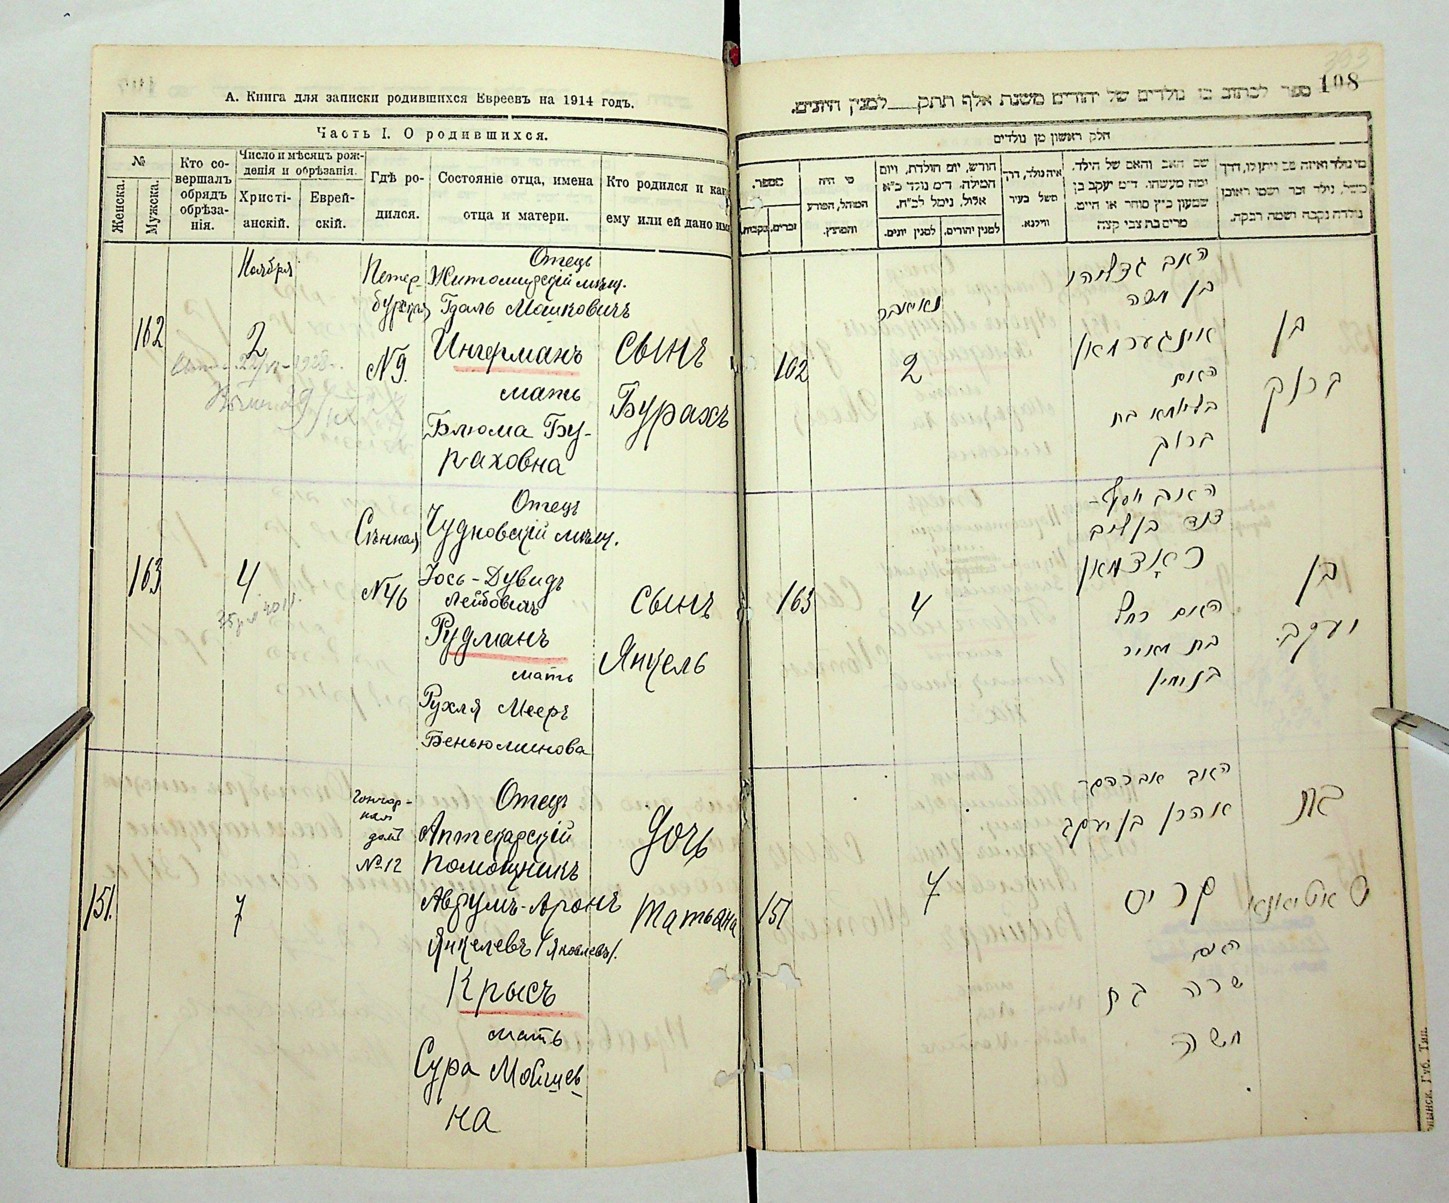 А. Книга для записки родившихся Евреевъ на 1914 годъ.
Часть I. О родившихся.
№
Женска.
Мужска.
Кто совершалъ обрядъ обрѣзанія.
Число и мѣсяцъ рожденія и обрѣзанія.
Христіанскій.
Еврейскій.
Гдѣ родился.
Состояніе отца, имена отца и матери.
Кто родился и как
ему или ей дано имя
162
Ноября
2
Петербургская
№ 9
Отецъ
Житомирскій мѣщ.
Гдаль Мошковичъ
Ингерманъ
мать
Блюма Бу-
раховна
сынъ
Бурахъ
163
4
Сѣнная
№ 46
Отецъ
Чудновскій мѣщ.
Іось-Дувидъ
Лейбовичъ
Рудманъ
мать
Рухля Мееръ
Беньюминова
сынъ
Янкель
151.
7
Гончар-
ная
домъ
№ 12
Отецъ
Аптекарскій
помощникъ
Аврумъ-Аронъ
Янкелевъ /Яковлевъ/.
Крысъ
мать
Сура Мойшев-
на
Дочь
Татьяна
108
ספר לכתוב בו נולדים של יהודים משנת אלף תתק למנין היונים.
חלק ראשון מן נולדים
מספר.
נקבות.
זכרים.
מי היה המוהל, הפורע והמוצץ.
חודש, יום הולדת, ויום המילה.
למנין יונים.
למנין יהודים.
איה נולד,
שם האב והאם של הילד.
162
2
האב גדליהו
בן משה
אינגערמאן
האם
בלומא בת
ברוך
בן
ברוך
163
4
האב יוסף
דוד בן ליב
האם רחל
בת מאיר
בנימין
בן
יעקב
151
7
האב אברהם
אהרן בן יעקב
קריס
האם
שרה בת
משה
בת